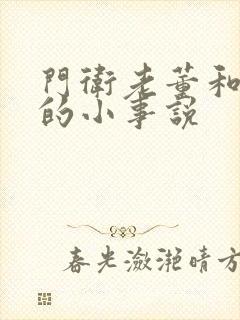 門衛老董和
的小事說
春光瀲滟晴方